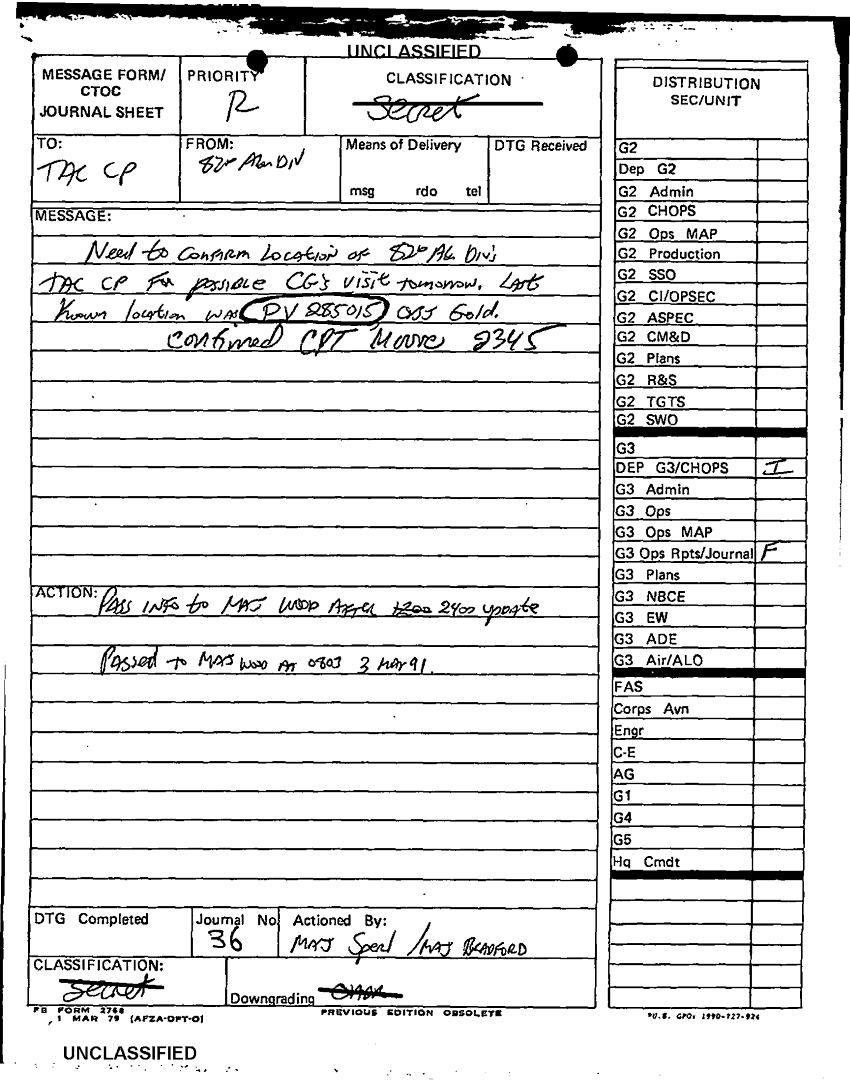 UNCLASSIFIED
MESSAGE FORM/
CTOC
JOURNAL SHEET
PRIORITY
R
CLASSIFICATION
Secret
TO:
TAC CP
FROM:
82D Abn DIV
Means of Delivery
msg rdo tel
DTG Received
MESSAGE:
Need to Confirm Location of 82D Ab. Div's
TAC CP For possible CG's visit tomorrow. Last
Known location was PV 285015 OBJ Gold.
confirmed CPT Moore 2345
ACTION:
Pass INFO to MAJ WOOD AFTER 1200 2400 update
Passed to MAJ WOOD AT 0803 3 MAR 91.
DTG Completed
Journal No
36
Actioned By:
MAJ /MAJ BRADFORD
CLASSIFICATION:
Secret
Downgrading OADR
FB FORM 2768
1 MAR 79 (AFZA-DPT-O)
PREVIOUS EDITION OBSOLETE
DISTRIBUTION
SEC/UNIT
G2
Dep G2
G2 Admin
G2 CHOPS
G2 Ops MAP
G2 Production
G2 SSO
G2 CI/OPSEC
G2 ASPEC
G2 CM&D
G2 Plans
G2 R&S
G2 TGTS
G2 SWO
G3
DEP G3/CHOPS I
G3 Admin
G3 Ops
G3 Ops MAP
G3 Ops Rpts/Journal F
G3 Plans
G3 NBCE
G3 EW
G3 ADE
G3 Air/ALO
FAS
Corps Avn
Engr
C-E
AG
G1
G4
G5
Hq Cmdt
*U.S. GPO: 1990-727-924
UNCLASSIFIED